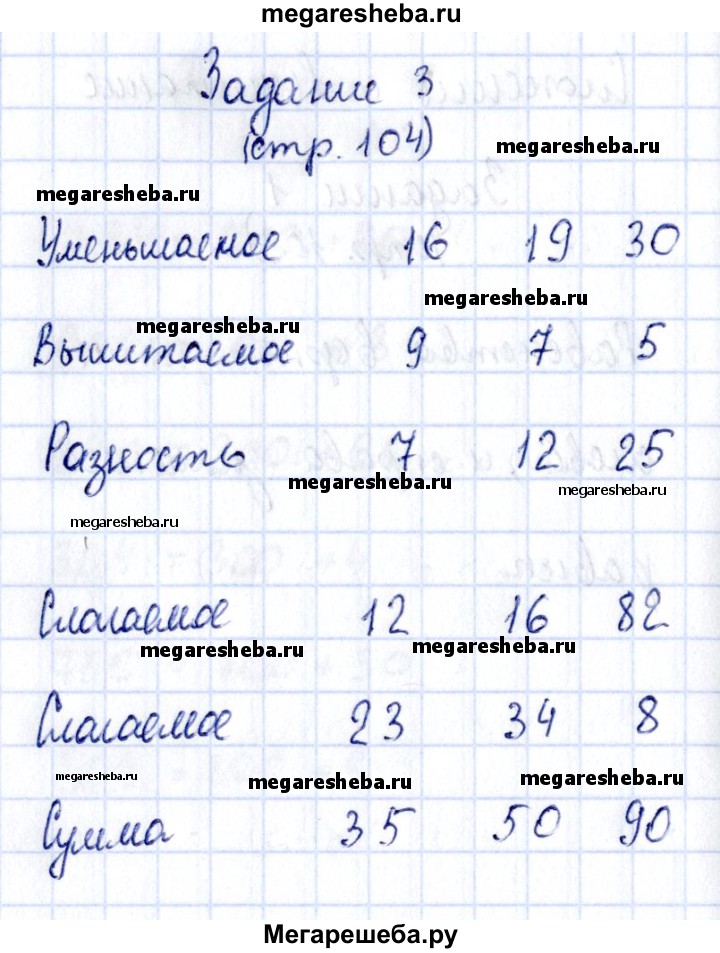 megaresheba.ru
Задание 3
(стр. 104)
megaresheba.ru
megaresheba.ru
Уменьшаемое 16 19 30
megaresheba.ru
megaresheba.ru
Вычитаемое 9 7 5
Разность 7 12 25
megaresheba.ru
megaresheba.ru
megaresheba.ru
Слагаемое 12 16 82
megaresheba.ru
megaresheba.ru
Слагаемое 23 34 8
megaresheba.ru
megaresheba.ru
megaresheba.ru
Сумма 35 50 90
Мегарешеба.ру